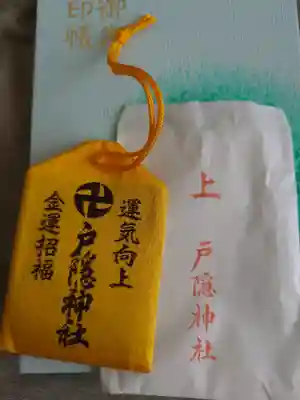 御朱印帳
運気向上
卍
戸隠神社
金運招福
上
戸隠神社